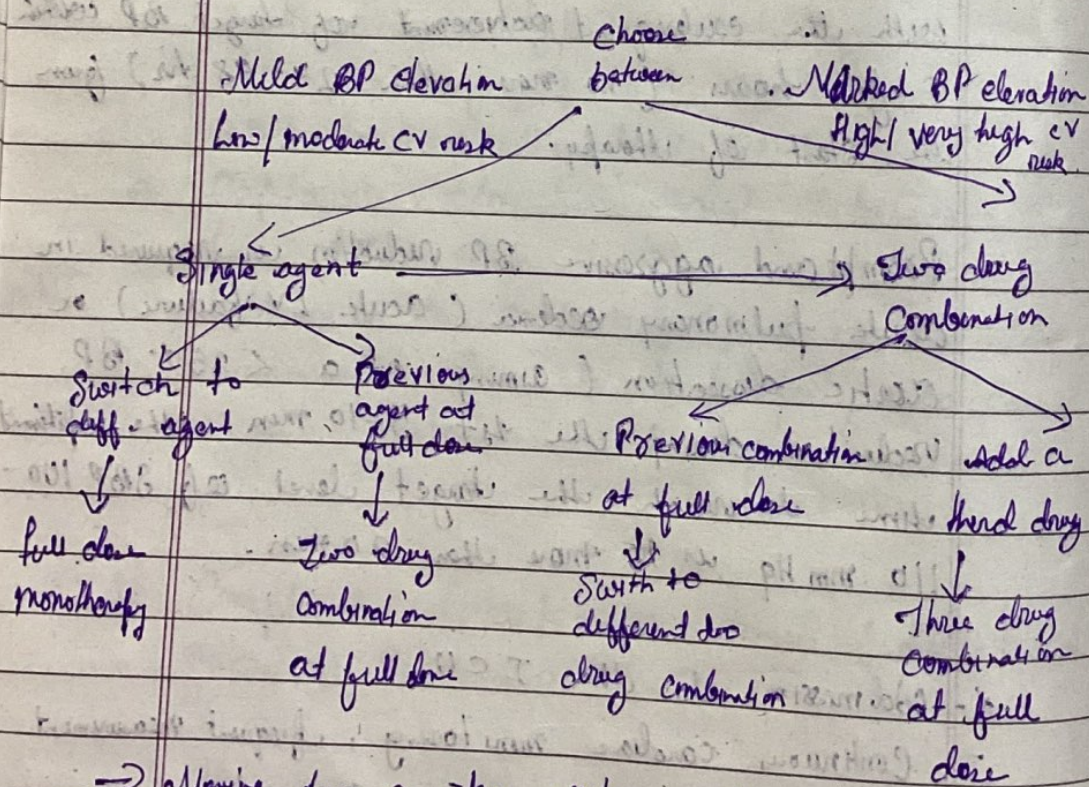 Choose
Mild BP elevation
between
Marked BP elevation
Low/moderate CV risk
High/ very high CV
risk
Single agent
Two drug
Combination
Switch to
diff. agent
Previous
agent at
full dose
Previous combination
at full dose
Add a
third drug
full dose
monotherapy
Two drug
combination
at full dose
Swith to
different
drug combination
Three drug
combination
at full
dose